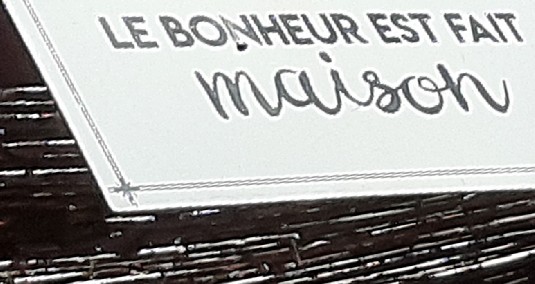 LE BONHEUR EST FAIT
maison